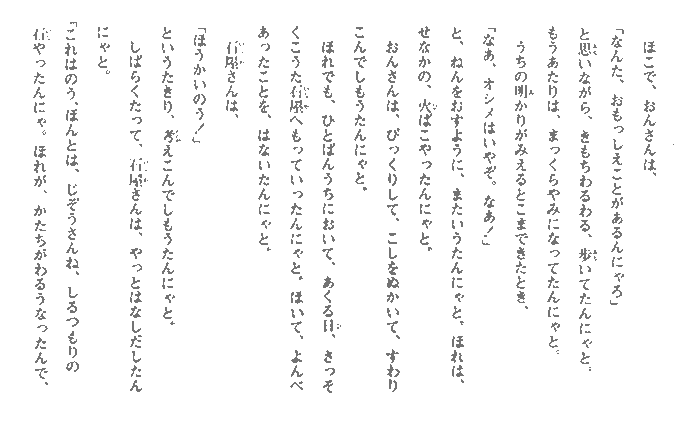 ほこで、おんさんは、
「なんた、おもっしえことがあるんにゃろ」
と思いながら、きもちわるわる、歩いてたんにゃと。
もうあたりは、まっくらやみになってたんにゃと。
うちの明かりがみえるとこまできたとき、
「なあ、オシメはいやぞ。なあ！」
と、ねんをおすように、またいうたんにゃと。ほれは、
せなかの、火ばこやったんにゃと。
おんさんは、びっくりして、こしをぬかいて、すわり
こんでしもうたんにゃと。
ほれでも、ひとばんうちにおいて、あくる日、さっそ
くこうた石屋へもっていったんにゃと。ほいて、よんべ
あったことを、はないたんにゃと。
石屋さんは、
「ほうかいのう！」
というたきり、考えこんでしもうたんにゃと。
しばらくたって、石屋さんは、やっとはなしだしたん
にゃと。
「これはのう、ほんとは、じぞうさんね、しるつもりの
石やったんにゃ。ほれが、かたちがわるうなったんで、